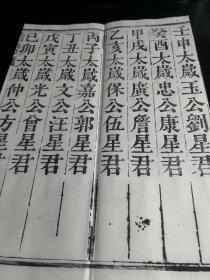 壬申太歲玉公劉星君
癸酉太歲忠公康星君
甲戌太歲廣公詹星君
乙亥太歲保公伍星君
丙子太歲嘉公郭星君
丁丑太歲文公汪星君
戊寅太歲光公曾星君
己卯太歲仲公方星君